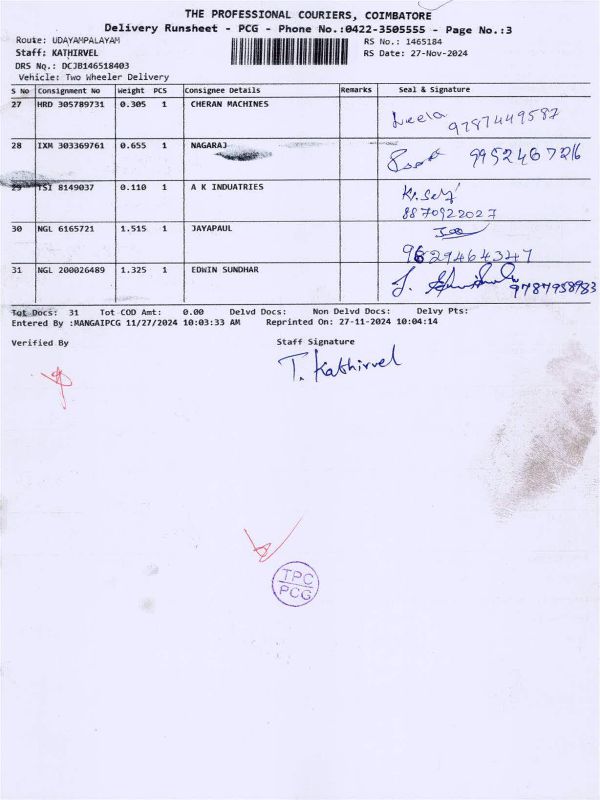 THE PROFESSIONAL COURIERS, COIMBATORE
Delivery Runsheet - PCG - Phone No.:0422-3505555 - Page No.:3
Route: UDAYAMPALAYAM RS No.: 1465184
Staff: KATHIRVEL RS Date: 27-Nov-2024
DRS No.: DCJB146518403
Vehicle: Two Wheeler Delivery
S No Consignment No Weight PCS Consignee Details Remarks Seal & Signature
27 HRD 305789731 0.305 1 CHERAN MACHINES Neela 9787449587
28 IXM 303369761 0.655 1 NAGARAJ
29 TSI 8149037 0.110 1 A K INDUATRIES
8870922027
30 NGL 6165721 1.515 1 JAYAPAUL
9629464347
31 NGL 200026489 1.325 1 EDWIN SUNDHAR 9787958983
Tot Docs: 31 Tot COD Amt: 0.00 Delvd Docs: Non Delvd Docs: Delvy Pts:
Entered By :MANGAIPCG 11/27/2024 10:03:33 AM Reprinted On: 27-11-2024 10:04:14
Verified By Staff Signature
T. Kathirvel
TPC
PCG